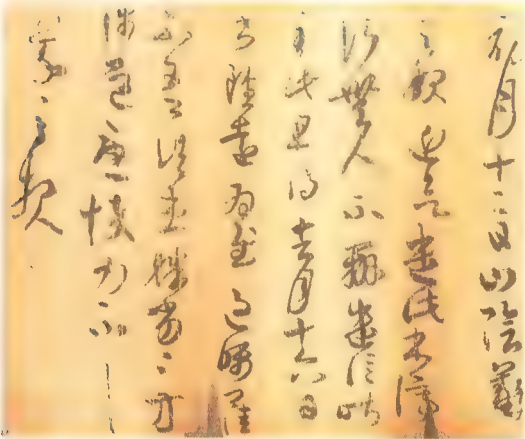 初月十二日山陰羲
之報近欲遣此書停
行無人不辦遣信昨
至此且得去月十六日
書雖遠為慰過囑卿
佳不吾諸患殊劣〻方
涉道憂悴力不一一
羲之報